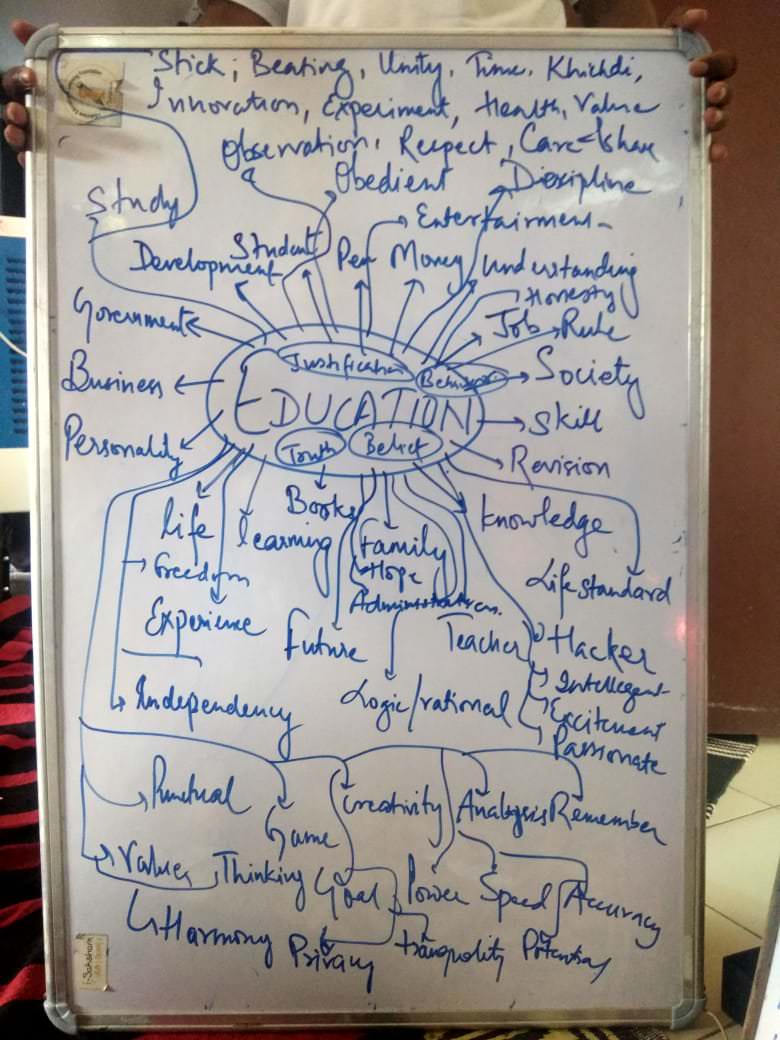 Stick, Beating, Unity, Time, Khichdi,
Innovation, Experiment, Health, Value
Observation, Respect, Care & share
Obedient Discipline
Study
Entertainment
Student
Development Pen Money Understanding
Honesty
Government Job Rule
Justification Behaviour
Business Society
EDUCATION
Skill
Personality Truth Belief
Revision
Books
Life learning Family Knowledge
Freedom Hope
Administration Life standard
Experience Future Teacher Hacker
Intellegent
Independency Logic/rational Exciterment
Passionate
Punctual Creativity Analysis Remember
Game
Values Thinking Goal Power Speed Accuracy
Harmony Privacy tranqulity Potential